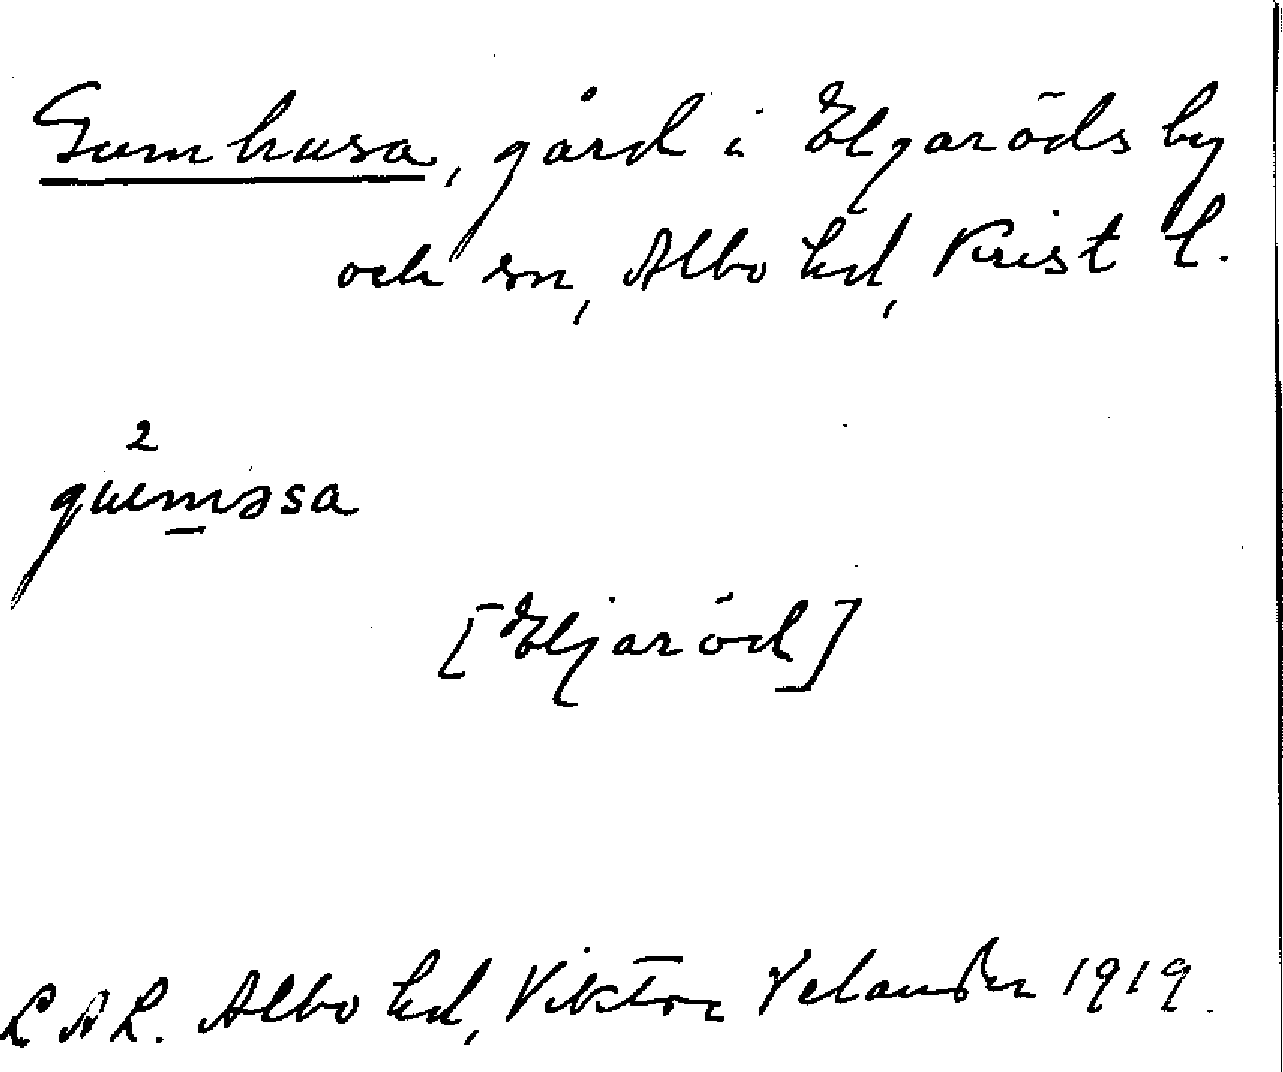 Gumhusa, gård i Eljaröds by
och sn, Albo hd, Krist l.
2
gueməsa
[Eljaröd]
LAL. Albo hd, Viktor 1919.